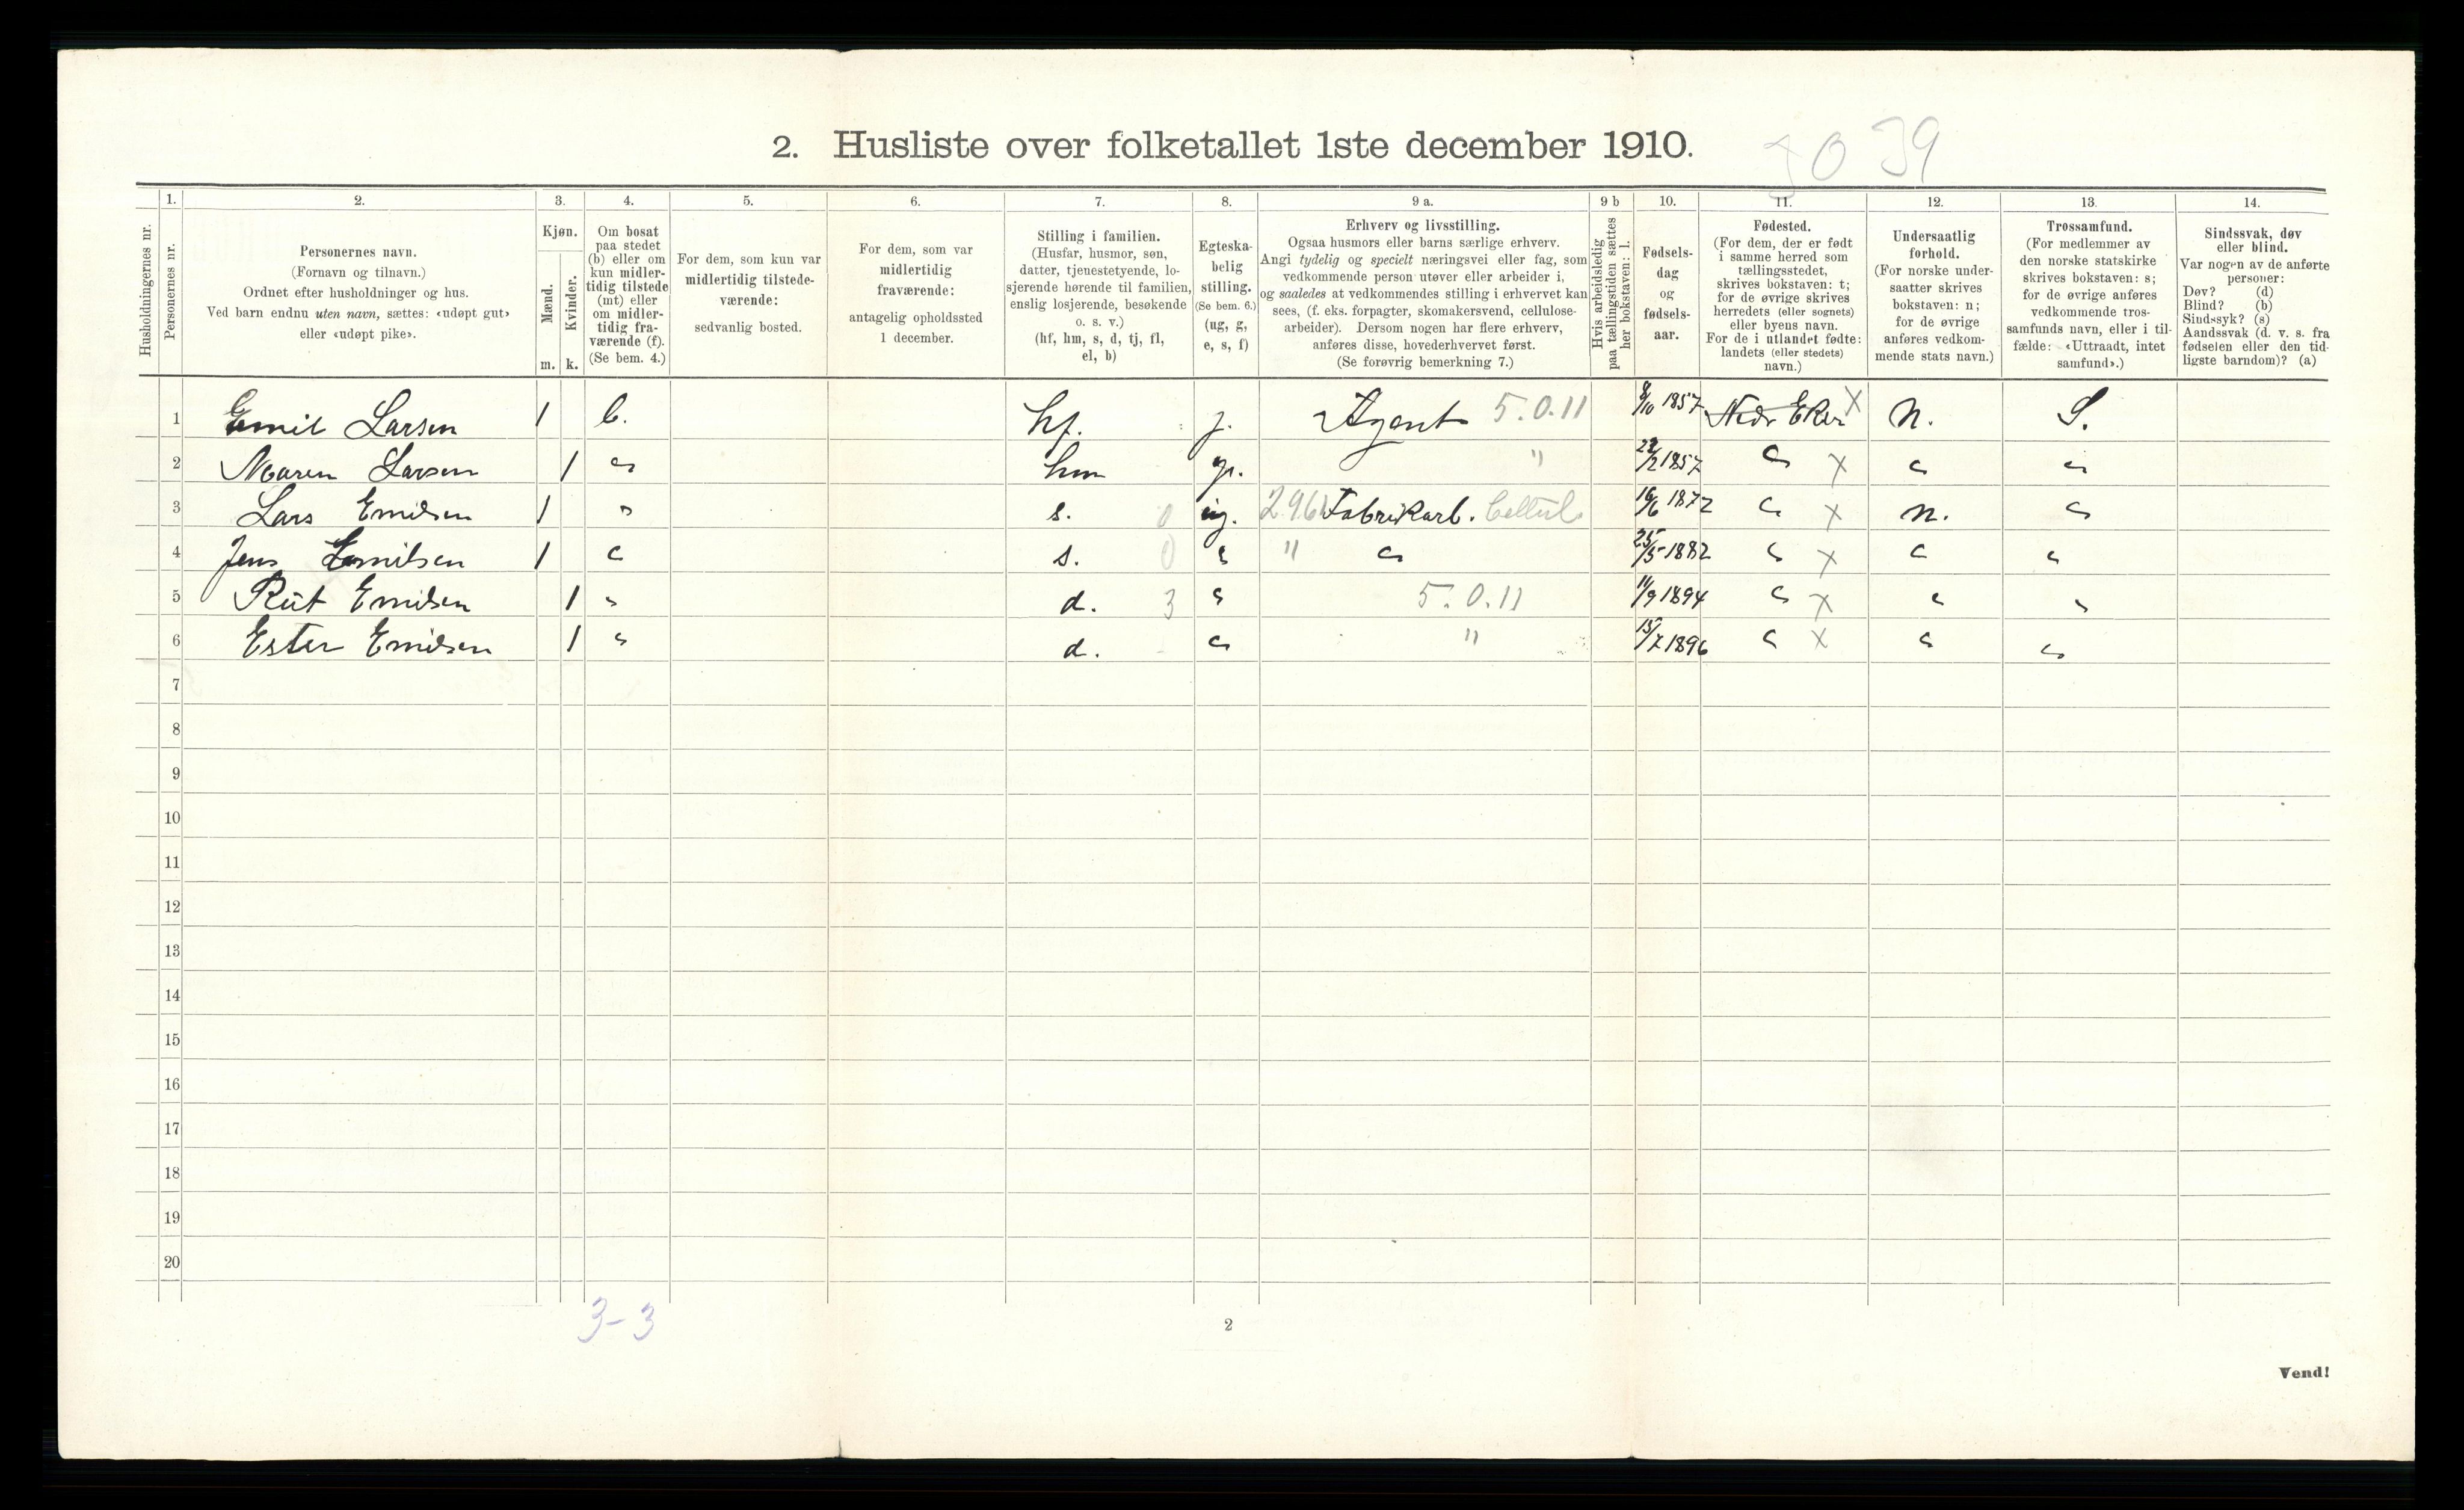 2. Husliste over folketallet 1ste december 1910.
39
Husholdningernes nr.
1.
Personernes nr.
2.
Personernes navn.
(Fornavn og tilnavn.)
Ordnet efter husholdninger og hus.
Ved barn endnu uten navn, sættes: «udøpt gut»
eller «udøpt pike».
3.
Kjøn.
Mænd.
Kvinder.
m. k.
4.
Om bosat
paa stedet
(b) eller om
kun midler-
tidig tilstede
(mt) eller
om midler-
tidig fra-
værende (f).
(Se bem. 4.)
5.
For dem, som kun var
midlertidig tilstede-
værende:
sedvanlig bosted.
6.
For dem, som var
midlertidig
fraværende:
antagelig opholdssted
1 december.
7.
Stilling i familien.
(Husfar, husmor, søn,
datter, tjenestetyende, lo-
sjerende hørende til familien,
enslig losjerende, besøkende
o. s. v.)
(hf, hm, s, d, tj, fl,
el, b)
8.
Egteska-
belig
stilling.
(Se bem. 6.)
(ug, g,
e, s, f)
9 a.
Erhverv og livsstilling.
Ogsaa husmors eller barns særlige erhverv.
Angi tydelig og specielt næringsvei eller fag, som
vedkommende person utøver eller arbeider i,
og saaledes at vedkommendes stilling i erhvervet kan
sees, (f. eks. forpagter, skomakersvend, cellulose-
arbeider). Dersom nogen har flere erhverv,
anføres disse, hovederhvervet først.
(Se forøvrig bemerkning 7.)
9 b
Hvis arbeidsledig
paa tællingstiden sættes
her bokstaven: l.
10.
Fødsels-
dag
og
fødsels-
aar.
11.
Fødested.
(For dem, der er født
i samme herred som
tællingsstedet,
skrives bokstaven: t;
for de øvrige skrives
herredets (eller sognets)
eller byens navn.
For de i utlandet fødte:
landets (eller stedets)
navn.)
12.
Undersaatlig
forhold.
(For norske under-
saatter skrives
bokstaven: n;
for de øvrige
anføres vedkom-
mende stats navn.)
13.
Trossamfund.
(For medlemmer av
den norske statskirke
skrives bokstaven: s;
for de øvrige anføres
vedkommende tros-
samfunds navn, eller i til-
fælde: «Uttraadt, intet
samfund».)
14.
Sindssvak, døv
eller blind.
Var nogen av de anførte
personer:
Døv? (d)
Blind? (b)
Sindssyk? (s)
Aandssvak (d. v. s. fra
fødselen eller den tid-
ligste barndom)? (a)
1 Emil Larsen 1 b. hf. g. Agent 5.0.11 8/10 1857 Nedr Eker X n. S.
2 Maren Larsen 1 " hm g. " 1857 " X " "
3 Lars Emilsen 1 " s. 0 ug. 2961 Fabrikarb. Cellul. 16/6 1872 " X n. "
4 Jens Emilsen 1 " s. 0 " " " 25/5 1882 " X " "
5 Rut Emilsen 1 " d. 3 " 5.0.11 11/9 1894 " X " "
6 Ester Emilsen 1 " d. " " 15/7 1896 " X " "
7
8
9
10
11
12
13
14
15
16
17
18
19
20
3-3
2
Vend!